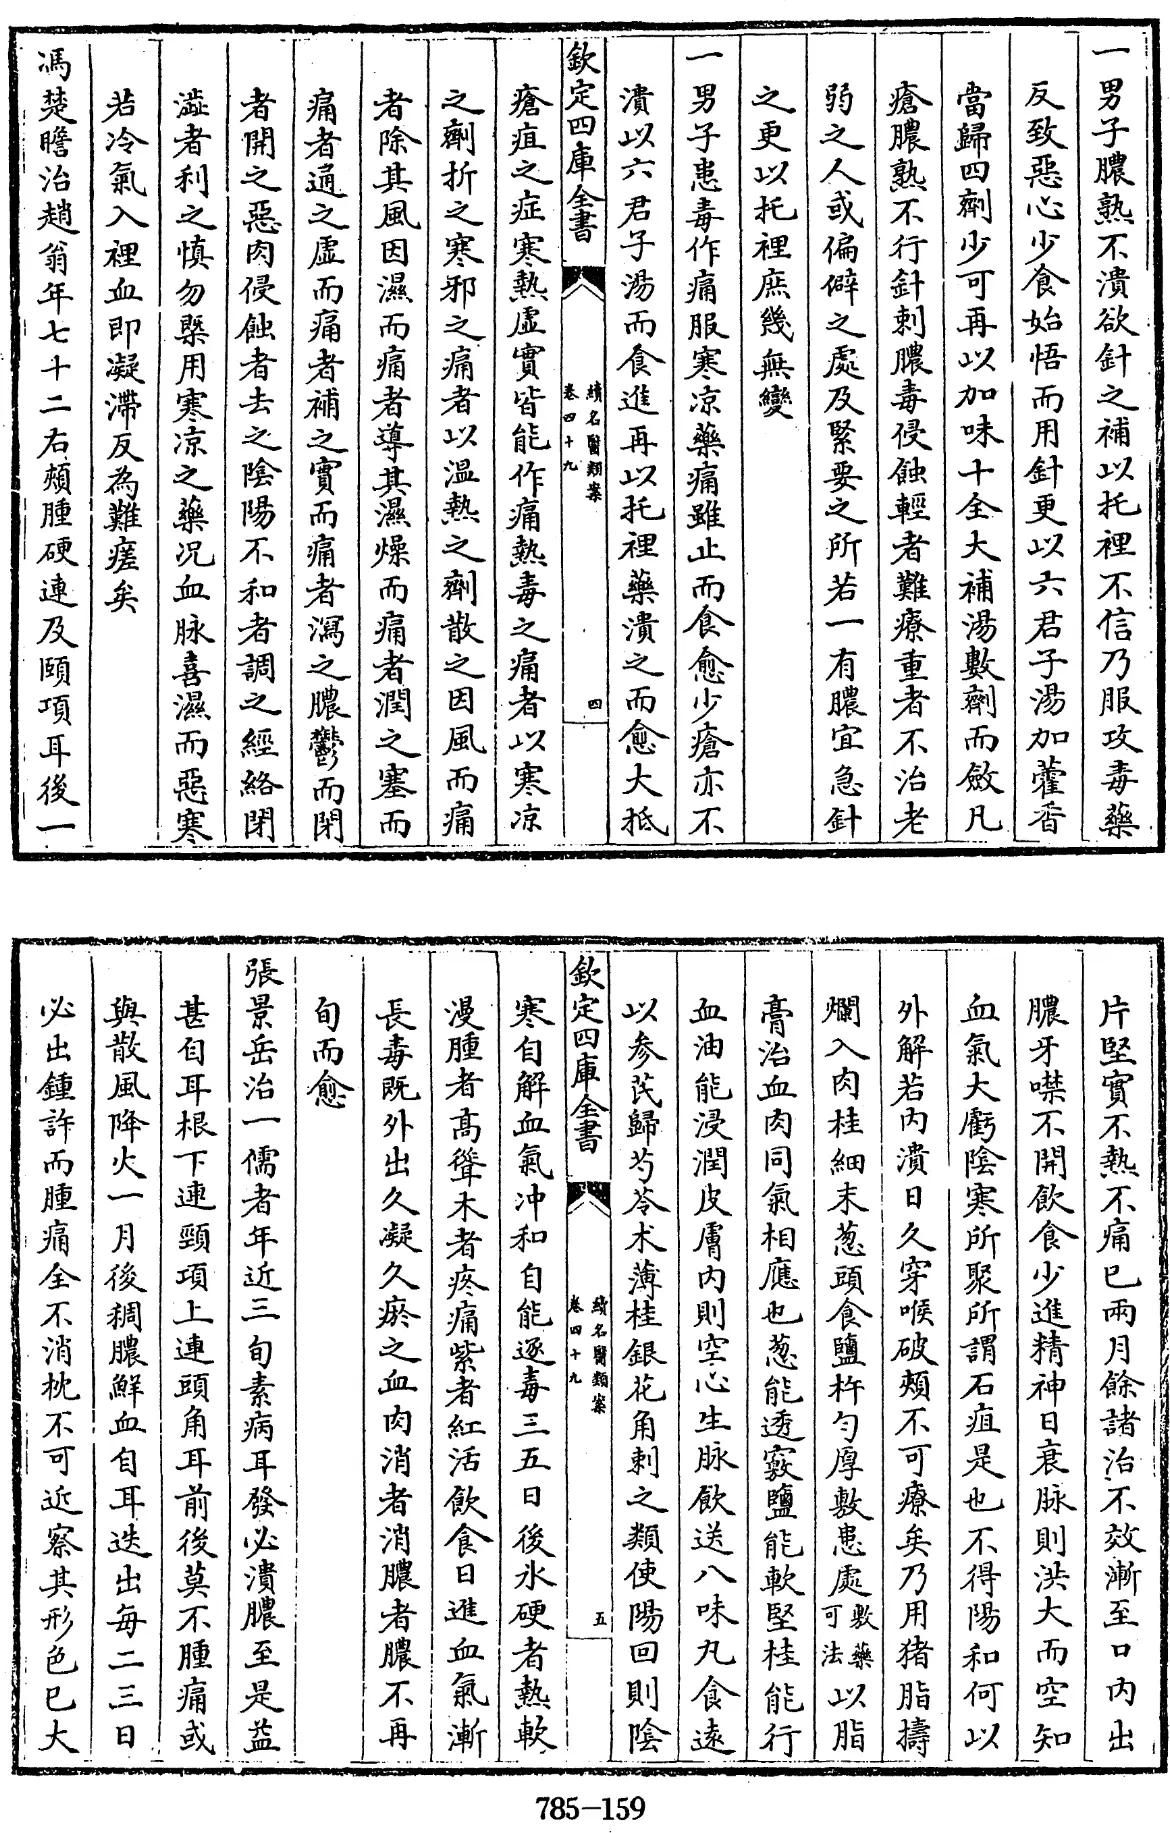 一男子膿熟不潰欲針之補以托裡不信乃服攻毒藥
反致惡心少食始悟而用針更以六君子湯加藿香
當歸四劑少可再以加味十全大補湯數劑而斂凡
瘡膿熟不行針刺膿毒侵蝕輕者難療重者不治老
弱之人或偏僻之處及緊要之所若一有膿宜急針
之更以托裡庶幾無變
一男子患毒作痛服寒凉藥痛雖止而食愈少瘡亦不
潰以六君子湯而食進再以托裡藥潰之而愈大抵
欽定四庫全書
續名醫類案
卷四十九
四
瘡疽之症寒熱虛實皆能作痛熱毒之痛者以寒凉
之劑折之寒邪之痛者以温熱之劑散之因風而痛
者除其風因濕而痛者導其濕燥而痛者潤之塞而
痛者通之虛而痛者補之實而痛者瀉之膿鬱而閉
者開之惡肉侵蝕者去之陰陽不和者調之經絡閉
澁者利之慎勿槩用寒凉之藥况血脉喜濕而惡寒
若冷氣入裡血即凝滯反為難瘥矣
馮楚瞻治趙翁年七十二右頰腫硬連及頤項耳後一
片堅實不熱不痛已兩月餘諸治不效漸至口內出
膿牙噤不開飲食少進精神日衰脉則洪大而空知
血氣大虧陰寒所聚所謂石疽是也不得陽和何以
外解若內潰日久穿喉破頰不可療矣乃用猪脂擣
爛入肉桂細末葱頭食鹽杵勻厚敷患處敷藥可法以脂
膏治血肉同氣相應也葱能透竅鹽能軟堅桂能行
血油能浸潤皮膚內則空心生脉飲送八味丸食遠
以參芪歸芍苓术薄桂銀花角刺之類使陽回則陰
欽定四庫全書
續名醫類案
卷四十九
五
寒自解血氣冲和自能逐毒三五日後氷硬者熱軟
漫腫者高聳木者疼痛紫者紅活飲食日進血氣漸
長毒既外出久凝久瘀之血肉消者消膿者膿不再
旬而愈
張景岳治一儒者年近三旬素病耳發必潰膿至是益
甚自耳根下連頸項上連頭角耳前後莫不腫痛或
與散風降火一月後稠膿鮮血自耳迭出每二三日
必出鍾許而腫痛全不消枕不可近察其形色已大
785-159